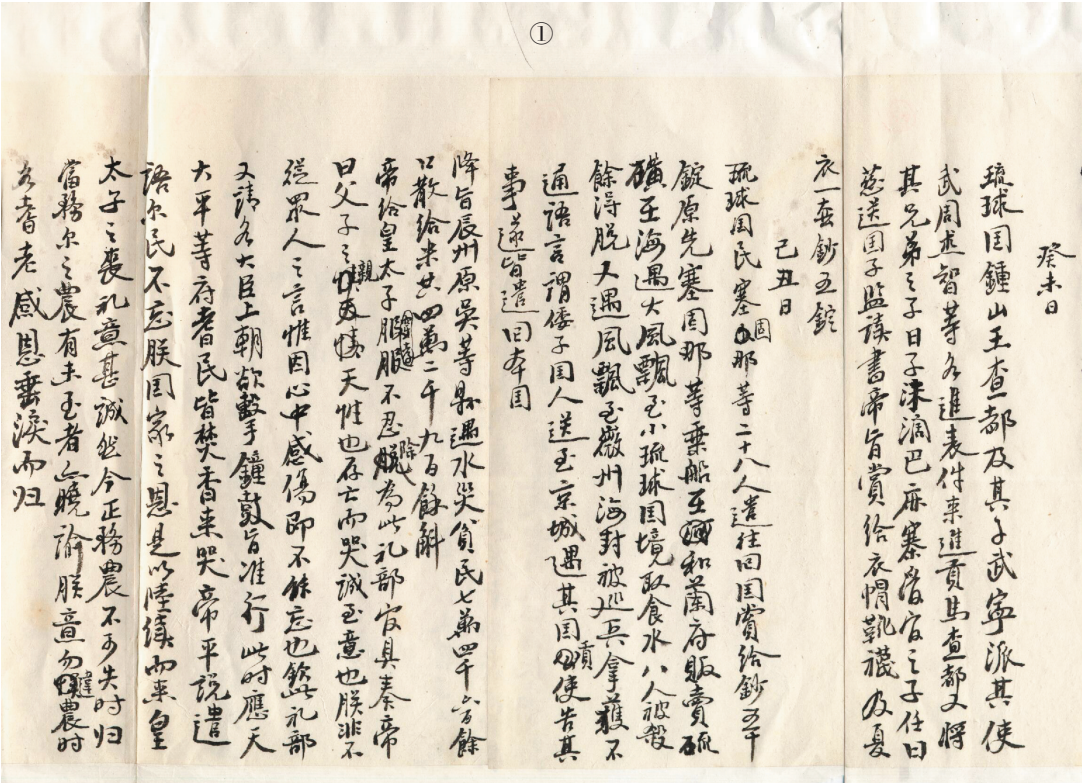 ①
癸未日
琉球囯鍾山王查都及其子武寧派其使
武周結智等各進表件来進貢馬查都又將
其兄弟之子日子洣濶巴麻寨官之子任曰
送囯子監讀書帝旨賞給衣帽靴襪及夏
衣一套鈔五錠
己丑日
琉球囯民塞固那等二十八人遣往回囯賞給鈔五千
錠原先塞固那等乗船至和蘭府販賣硫
磺至海遇大風飄至小琉球囯境取食水八人被殺
餘淂脱又遇風飄至徽州海封被巡兵拿獲不
通語言謂倭子囯人送至京城遇其囯貢使告其
事遂皆遣囘本囯
降旨辰州原吳等縣遇水災貧民七萬四千六百餘
口散給米共四萬二千九百餘斛
帝給皇太子服不忍除為此礼部官具奏帝
曰父子之親天性也存亡而哭誠至意也朕非不
從眾人之言惟因心中感傷即不能忘也欽此礼部
又請各大臣上朝欲敲手鐘鼓旨准行此时應天
大平等府耆民皆焚香来哭帝平説遣
語尔民不忘朕囯家之恩是以陸續而来皇
太子之喪礼意甚誠然今正務農不可失时归
當務尔之農有未至者亦曉諭朕意勿違農时
各耆老感恩垂淚而归